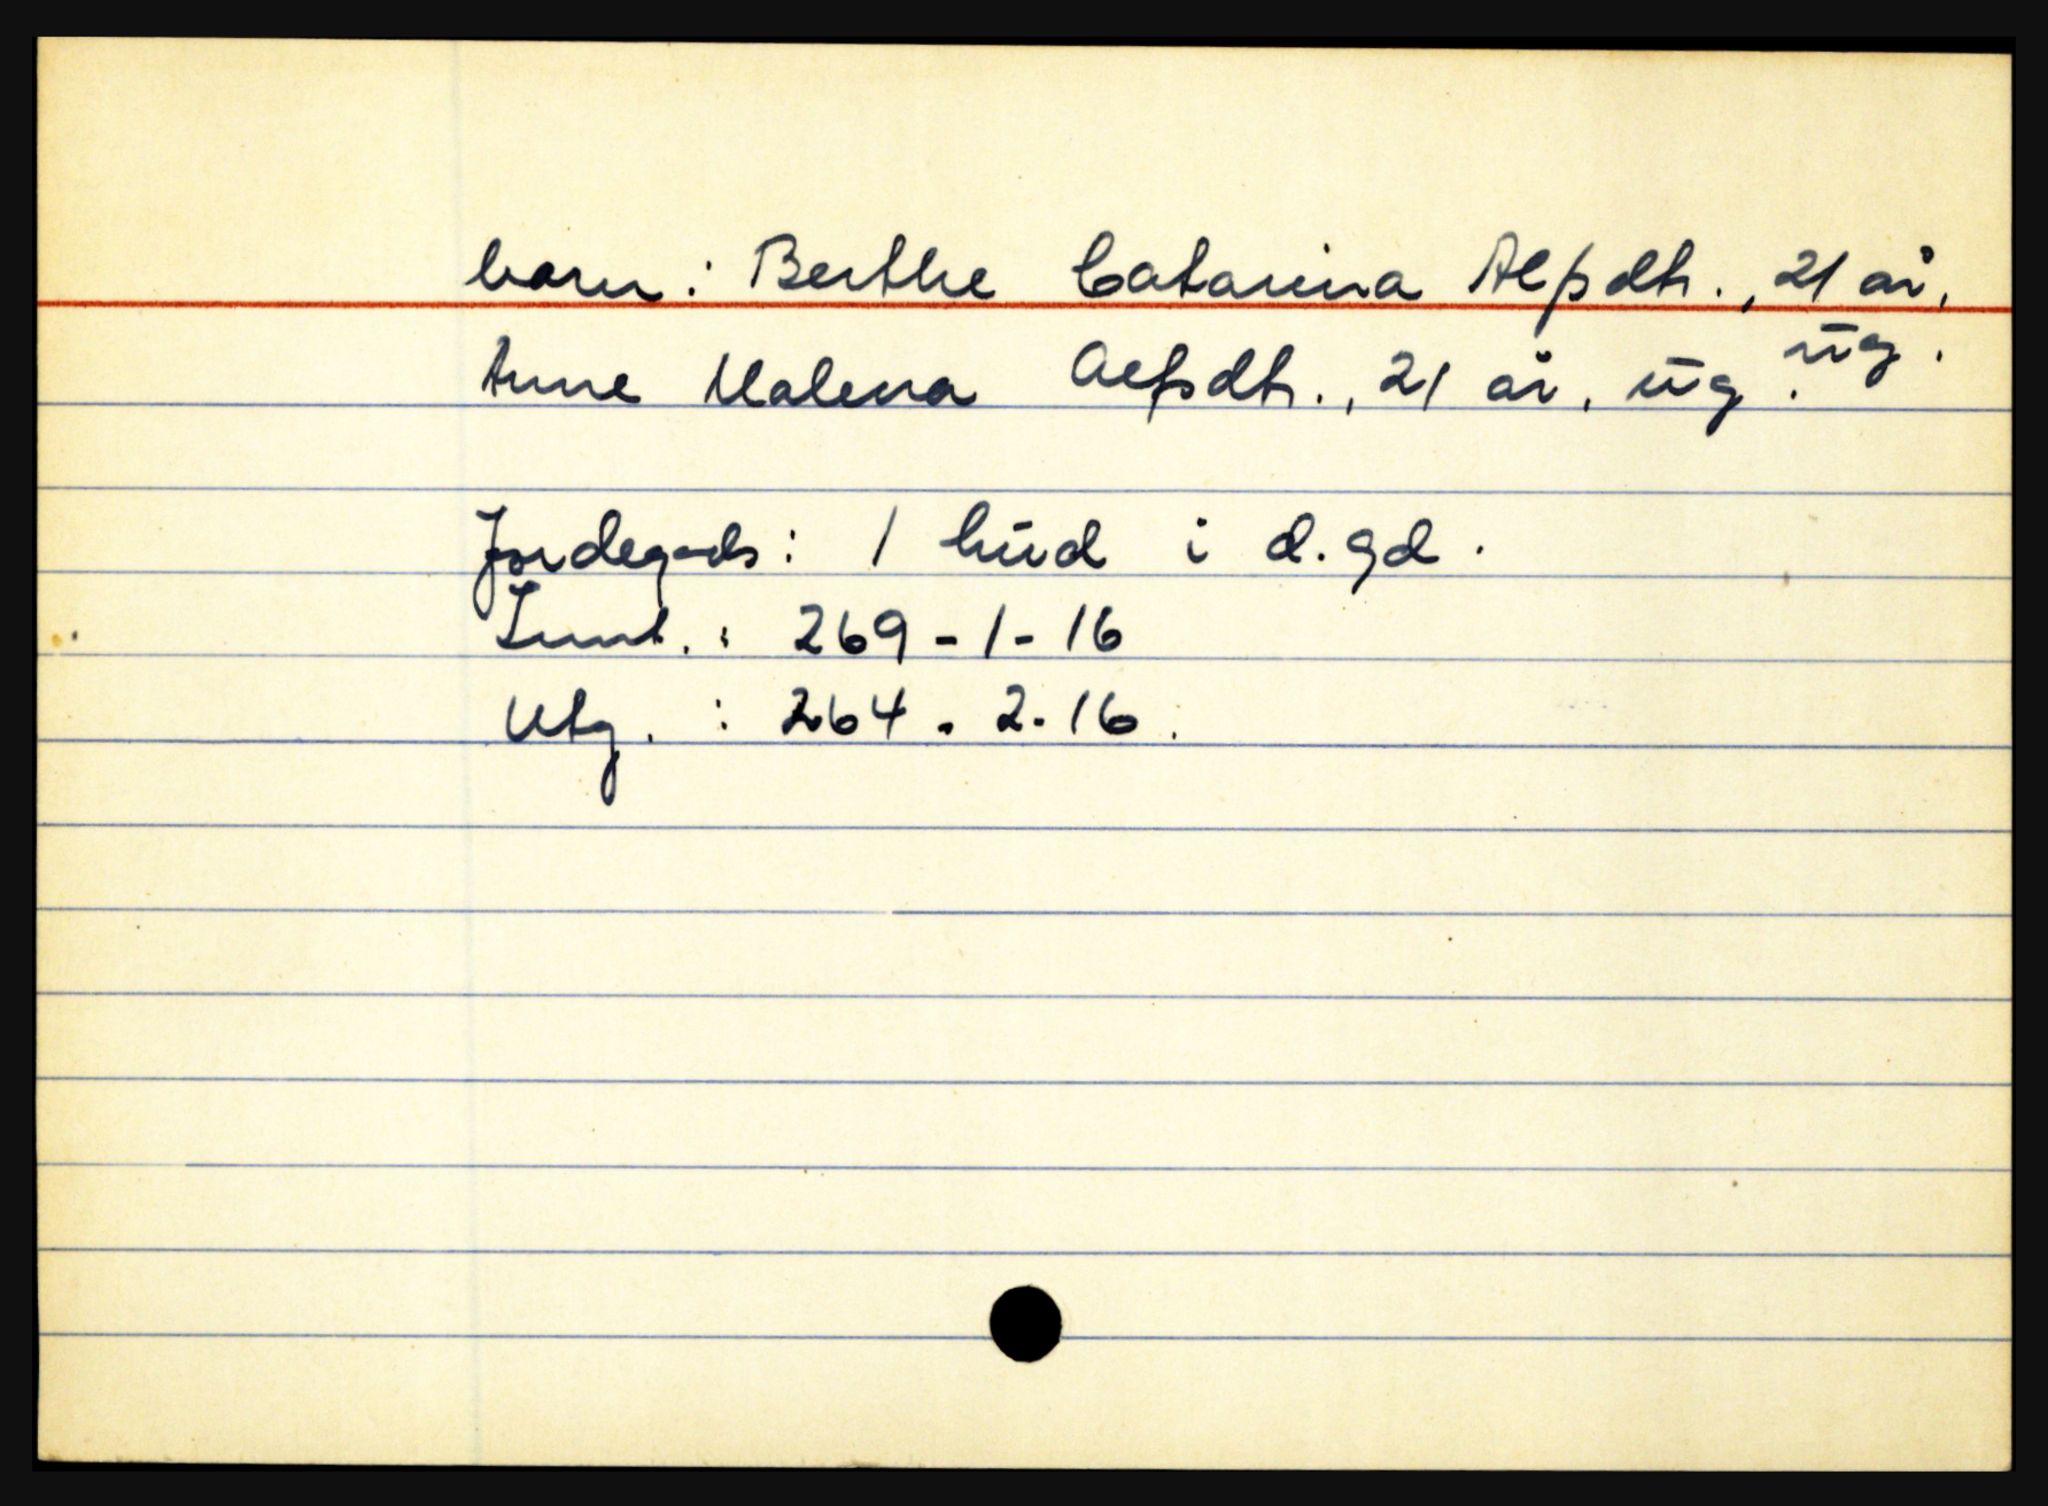 barn: Berthe Catarina Alfsdtr., 21 år, ug.
Anne Malena Alfsdtr., 21 år, ug.
Jordegods: 1 hud i d. gd.
Innt.: 269-1-16
Utg.: 264-2-16.